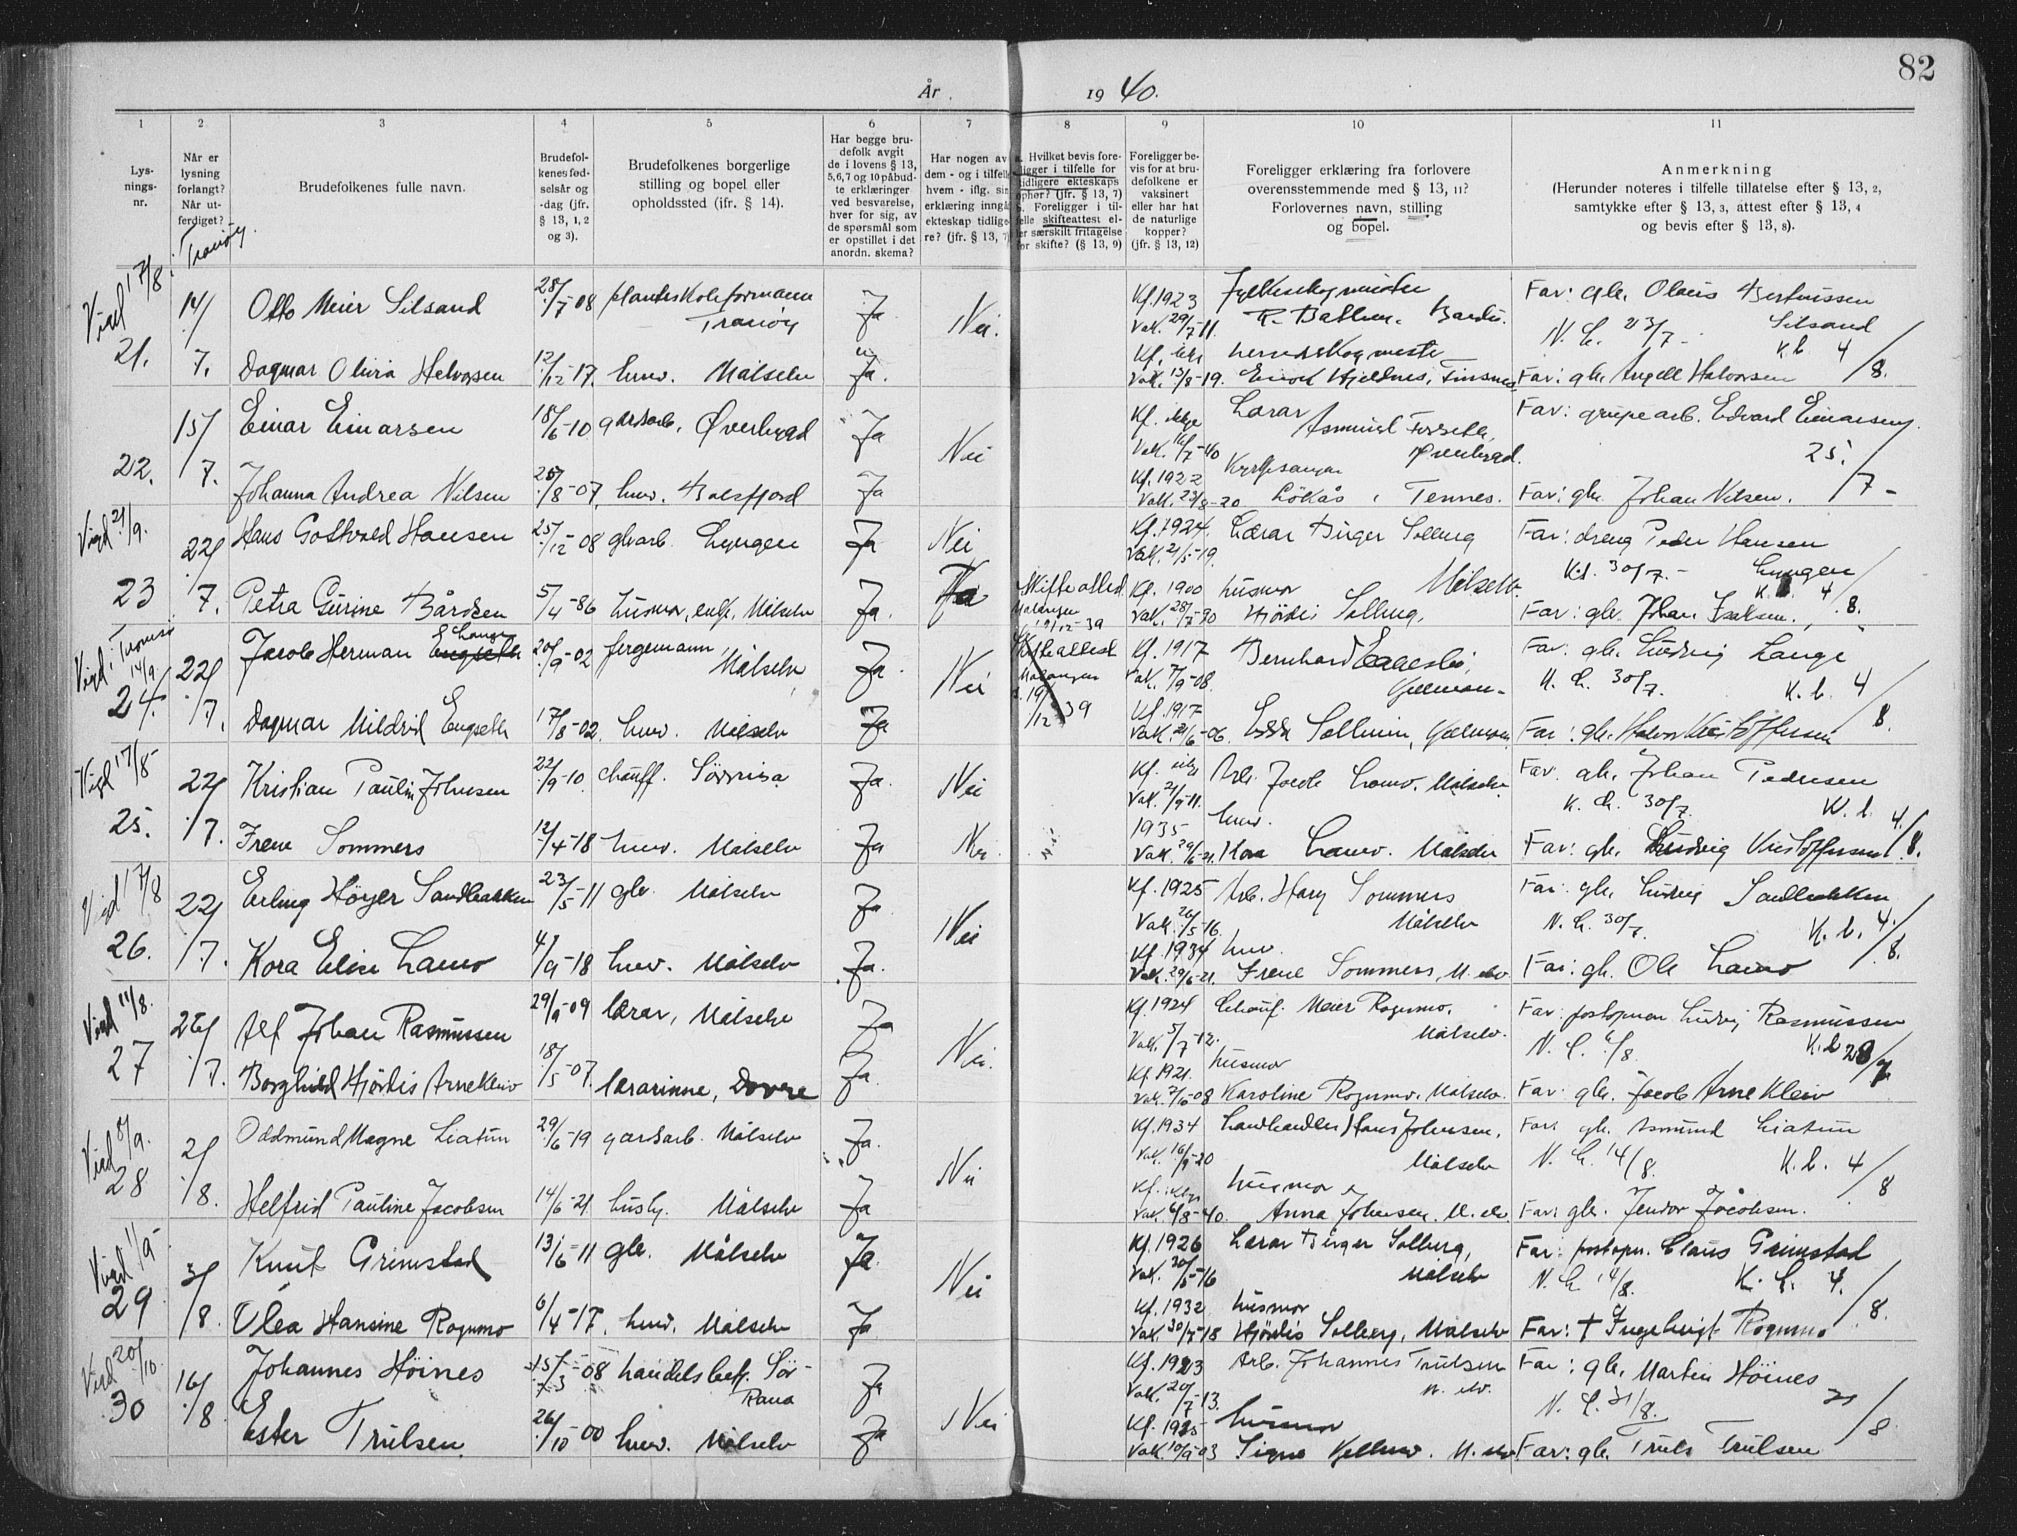 82
År 1940.
1 2 3 4 5 6 7 8 9 10 11
Lys-
nings-
nr.
Når er
lysning
forlangt?
Når ut-
ferdiget?
Brudefolkenes fulle navn.
Brudefol-
kenes fød-
selsår og
-dag (jfr.
§ 13, 1, 2
og 3).
Brudefolkenes borgerlige
stilling og bopel eller
opholdssted (ifr. § 14).
Har begge bru-
defolk avgit
de i lovens § 13,
5,6,7 og 10 påbud-
te erklæringer
ved besvarelse,
hver for sig, av
de spørsmål som
er opstillet i det
anordn. skema?
Har nogen av
dem - og i tilfelle
hvem - iflg. sin
erklæring inngå
ekteskap tidlige-
re? (jfr. § 13, 7)
a. Hvilket bevis fore-
ligger i tilfelle for
tidligere ekteskaps
ophør? (jfr. § 13, 7)
b. Foreligger i til-
felle skifteattest el-
ler særskilt fritagelse
for skifte? (§ 13, 9)
Foreligger be-
vis for at bru-
defolkene er
vaksinert
eller har hat
de naturlige
kopper?
(jfr. § 13, 12)
Foreligger erklæring fra forlovere
overensstemmende med § 13, 11?
Forlovernes navn, stilling
og bopel.
Anmerkning
(Herunder noteres i tilfelle tillatelse efter § 13, 2,
samtykke efter § 13, 3, attest efter § 13, 4
og bevis efter § 13, 8).
Viet 17/8 i Tranøy
21. 14/7. Otto Meier Silsand 28/7-08 planteskoleformann Tranøy Ja Nei. Kf. 1923 Vak. 29/7-11. Fylkesskogmester Bardu. Far: gbr. Olaus Bertinussen Silsand
N. L. 23/7 - K.b. 4/8.
Dagmar Olivia Halvorsen 12/12-17. husv. Målselv Ja. Kf. ikke Vak. 13/8-19. herredskogmester Hjeldnes, Finsnes Far: gbr. Angell Halvorsen
22. 15/7. Einar Einarsen 18/6-10 gårdsarb. Øverbygd Ja Nei Kf. ikke Vak. 16/7-40 Lærar Asmund Forseth, Øverbygd. Far: grubearb. Edvard Einarsen.
25/7-
Johanna Andrea Nilsen 25/8-07. husv. Balsfjord Ja Kf. 1922 Vak. 23/8-20 Kyrkjesangar Løkås, Tennes. Far: gbr. Johan Nilsen.
Vigd 21/9.
23 22/7. Hans Gottvald Hansen 25/12 08 gbarb. Lyngen Ja Nei Kf. 1924. Vak. 21/5-19. Lærar Birger Solberg Far: dreng Peder Hansen Lyngen
K.l. 30/7. - K.b. 4/8.
Petra Gurine Bårdsen 5/4-86 husmor, enke, Målselv Ja. Ja Skifteattest Malangen 19/12-39 Kf. 1900 Vak. 28/7-90 husmor Hjördis Solberg. Målselv. Far: gbr. Johan Isaksen.
Vigd i Tromsø 14/9.
24. 22/7. Jacob Herman Engseth Lange 20/9-02 fergemann, Målselv Ja. Nei Skifteattest Malangen d. 19/12 39 Kf. 1917 Vak. 7/9-08. Bernhard Gjelmoen. Far: gbr. Ludvig Lange
N. L. 30/7. K.b. 4/8
Dagmar Mildrid Engseth 17/8-02. husv. Målselv Ja Kf. 1917 Vak. 21/6-06. Gjelmoen Far: gbr. Halvor Kristoffersen
Vigd 17/8-
25. 22/7. Kristian Paulin Johnsen 22/9-10. chauff. Sørreisa Ja. Nei Kf. ikke Vak. 21/9-11. Arb. Målselv. Far. gbr. Johan Pedersen
K. L. 30/7. K.b. 4./8.
Irene Sommers 12/4-18 husv. Målselv Ja Nei. 1935 Vak. 29/6-21. husv. Kora Lamo. Målselv Far: gbr. Ludvig Kristoffersen
Vigd 17/8
26. 22/7. Erling Höyer Sandbakken 23/5-11 gbr. Målselv Ja Nei Kf. 1925 Vak. 26/5-16. Arb. Hary Sommers Målselv Far: gbr. Ludvig Sandbakken
N. L. 30/7. K. b. 4./8.
Kora Elise Lamo 4/9-18 husv. Målselv Ja. Kf. 1934 Vak. 29/6-21. husv Irene Sommers, M.elv Far: gbr. Ole Lamo
Vigd 11/8.
27 26/7. Alf Johan Rasmussen 29/9-09 lærar, Målselv Ja Nei. Kf. 1924 Vak. 5/7-12. Chauf. Meier Rognmo. Målselv. Far: postopnar Ludvig Rasmussen
N. L. 6/8. K.b 28/7
Borghild Hjördis Arnekleiv 18/5-07. lærarinne, Dovre Ja. Kf. 1921. Vak. 7/6-08 husmor Karoline Rognmo. Målselv. Far: gbr. Jacob Arnekleiv
Vied 8/9.
28 2/8. Oddmund Magne Liatun 29/6-19 gardsarb. Målselv Ja. Nei Kf. 1934 Vak. 16/9-20 Landhandler Hans Johnsen, Målselv Far: gbr. Asmund Liatun
N. L. 14/8. K. b. 4/8
Helfrid Pauline Jacobsen 14/6-21. hush. Målselv Ja Kf. ikke Vak. 6/8-40. husmor Anna Johnsen. M. elv. Far: gbr. Jendor Jacobsen.
Vigd 1/9-
29 3/8. Knut Grimstad 13/6-11 gbr. Målselv Ja. Nei Kf. 1926 Vak. 30/5-16 Lærar Birger Solberg, Målselv Far: postopn. Claus Grimstad
N. L 14/8. K. b. 4./8.
Olea Hansine Rognmo 6/4-17. husv. Målselv Ja Kf. 1932 Vak. 30/7-18 husmor Hjördis Solberg, Målselv Far: † Ingebrigt Rognmo
Vied 20/10.
30 16/8. Johannes Höines 15/3-08 handelsbetj. Sör-Rana Ja Nei Kf. 1923 Vak. 20/7-13. Arb. Johannes Trulsen M. elv. Far: gbr. Martin Höines
N. L. 31/8. 21/8
Ester Trulsen 26/10-00 husv. Målselv Ja Kf. 1915 Vak. 10/9-03 husmor Signe Kjellmo. M. elv Far: gbr. Truls Trulsen